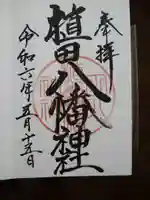 奉拝
植田八幡社
令和六年五月十五日